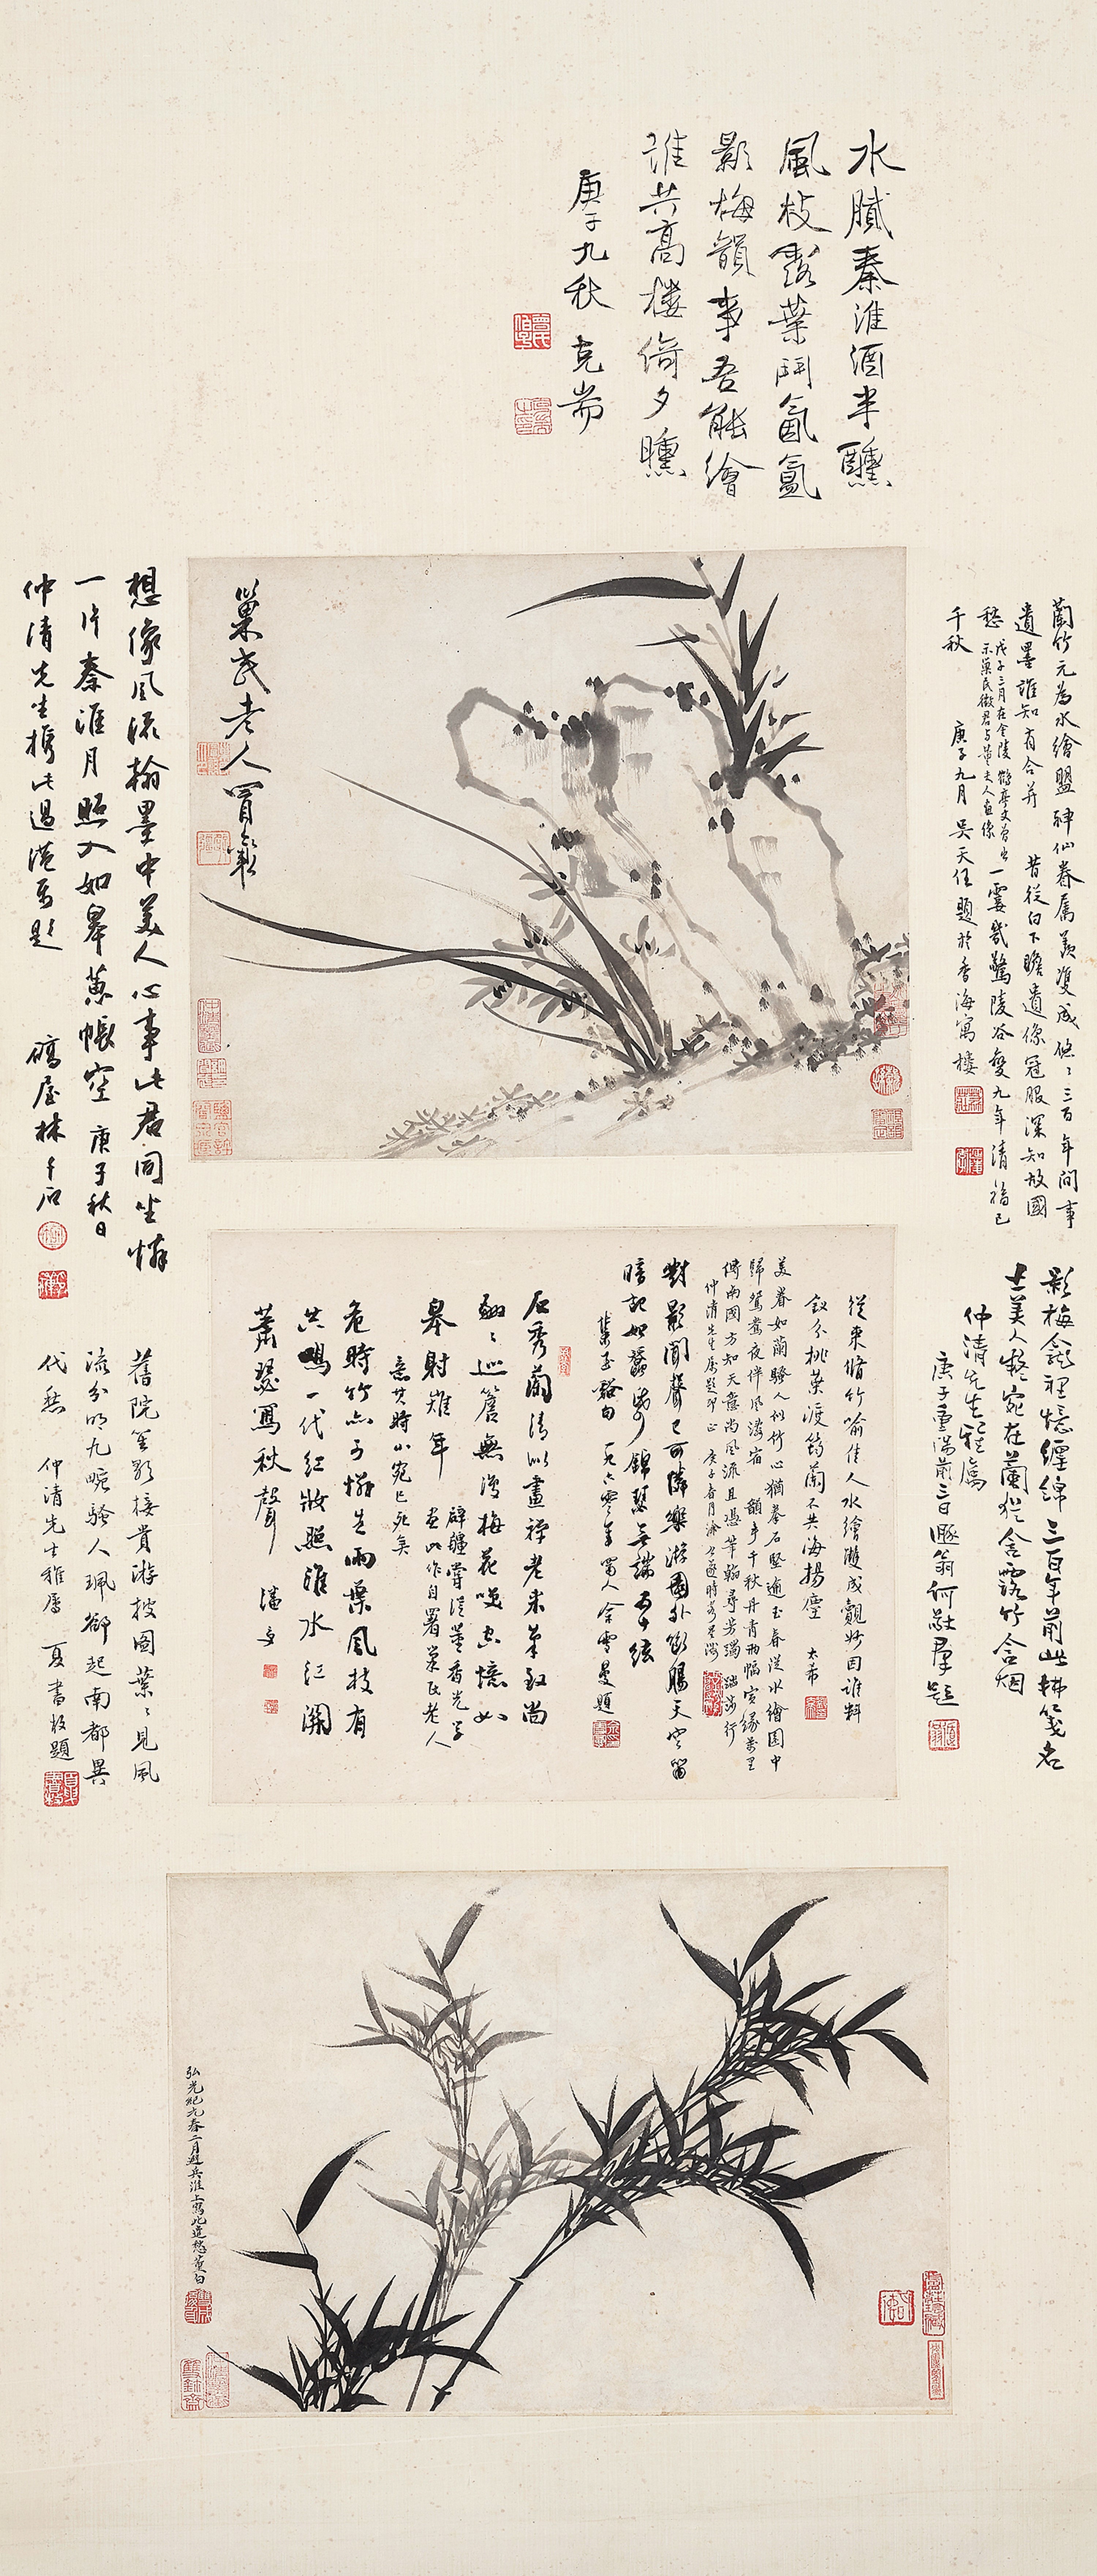 水膩秦淮酒半醺
風枝露葉鬥氤氳
影梅韻事吾能繪
誰共高樓倚夕曛
庚子九秋 克耑
蘭竹元為水繪盟神仙眷屬羨雙成悠悠三百年間事
遺墨誰知有合并 昔從白下瞻遺像冠服深知故國
愁 一霎幾驚陵谷變九年清福已
戊子三月在金陵鶴亭丈曾出
示巢民徵君與董夫人畫像
千秋 庚子九月吳天任題於香海寓樓
巢民老人冒襄
想像風流翰墨中美人心事此君同坐憐
一片秦淮月照入如皋蕙帳空 庚子秋日
仲清先生攜此過港屬題 碻屋林千石
影梅龕裡憶纏綿三百年前此拂箋名
士美人癡宛在蘭猶含露竹含烟
仲清先生雅屬
庚子重陽前三日遯翁何敬羣題
從來脩竹喻佳人水繪雙成覿妙因誰料
釵分桃葉渡筠蘭不共海揚塵 太希
美眷如蘭騷人似竹心猶拳石堅逾玉春從水繪園中
歸鴛鴦夜伴風漪宿 韻事千秋丹青兩幅寅緣萬里
倚兩國方知天意尚風流且憑筆翰尋芳躅 踏莎行
對影聞聲已可憐樂游園外斷腸天空留
暗記如蠶紙錦瑟無端五十絃
集玉谿句 一九六零年 蜀人余雪曼題
石秀蘭清似畫禪老來筆致尚
翩翩巡簷無復梅花笑忍憶如
皋射雉年 辟疆嘗從董香光學
畫此作自署巢民老人
意其時小宛已死矣
危時竹亦可憐生雨葉風枝有
共鳴一代紅妝照淮水江關
蕭瑟寫秋聲 潘
舊院笙歌接貴游披圖葉葉見風
流分明九畹騷人珮卻起南都異
代愁 仲清先生雅屬 夏書枚題
弘光紀元春二月避兵淮上寫此遣愁 董白